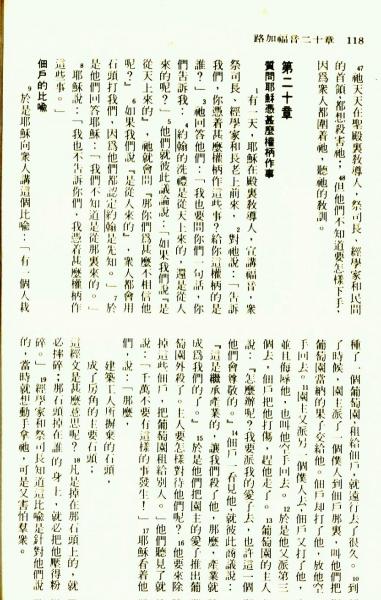 路加福音二十章　118
47祂天天在聖殿裏教導人，祭司長、經學家和民間
的首領，都想殺害祂；48但他們不知道要怎樣下手，
因爲眾人都圍着祂，聽祂的教訓。
第二十章
質問耶穌憑甚麼權柄作事
1有一天，耶穌在殿裏教導人，宣講福音，衆
祭司長、經學家和長老上前來，2對祂說：「告訴
我們，你憑着甚麼權柄作這些事？給你這權柄的是
誰？」3祂回答他們：「我也要問你們一句話，你
們告訴我：4約翰的洗禮是從天上來的，還是從人
來的呢？」5他們就彼此議論說：「如果我們說『是
從天上來的』，祂就會問『那你們爲甚麼不相信他
呢？』6如果我們說『是從人來的』，衆人都會用
石頭打我們，因爲他們都認定約翰是先知。」7於
是他們回答耶穌：「我們不知道是從那裏來的。」
8耶穌說：「我也不告訴你們，我憑着甚麼權柄作
這些事。」
佃戶的比喻
9於是耶穌向衆人講這個比喻：「有一個人栽
種了一個葡萄園，租給佃戶，就遠行去了很久。10到
了時候，園主派了一個僕人到佃戶那裏，叫他們把
葡萄園當納的果子交給他。佃戶却打了他，放他空
手回去。11園主又派另一個僕人去，佃戶又打了他，
並且侮辱他，也叫他空手回去。12於是他又派第三
個去，佃戶把他打傷，趕他走了。13葡萄園的主人
說：『怎麼辦呢？我要派我的愛子去，也許這一個
他們會尊敬的。』14佃戶一看見他，就彼此商議說：
『這是繼承產業的，讓我們殺了他，那麼，產業就
成爲我們的了。』15於是他們把園主的愛子推出葡
萄園外殺了。主人要怎樣對待他們呢？16他要來除
掉這些佃戶，把葡萄園租給別人。」他們聽見了就
說：「千萬不要有這樣的事發生！」17耶穌看着他
們，說：「那麼，
建築工人所摒棄的石頭，
成了房角的主要石頭；
這經文是甚麼意思呢？18凡是掉在那石頭上的，就
必摔碎；那石頭掉在誰的身上，就必把他壓得粉
碎。」19經學家和祭司長知道這比喻是針對他們說
的，當時就想動手拿祂，可是又害怕羣衆。